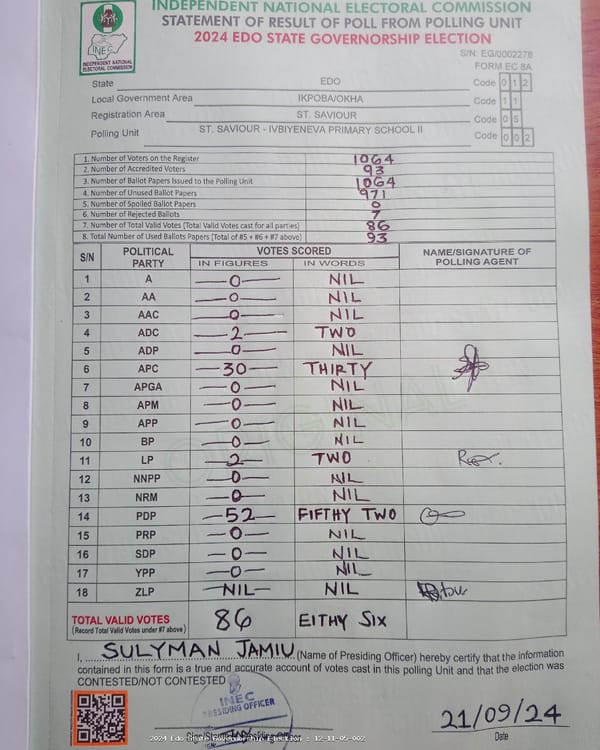 INDEPENDENT NATIONAL ELECTORAL COMMISSION
STATEMENT OF RESULT OF POLL FROM POLLING UNIT
2024 EDO STATE GOVERNORSHIP ELECTION
INEC
INDEPENDENT NATIONAL ELECTORAL COMMISSION
S/N: EG/0002278
FORM EC 8A
State EDO Code 0 1 2
Local Government Area IKPOBA/OKHA Code 1 1
Registration Area ST. SAVIOUR Code 0 5
Polling Unit ST. SAVIOUR - IVBIYENEVA PRIMARY SCHOOL II Code 0 0 2
1. Number of Voters on the Register 1064
2. Number of Accredited Voters 93
3. Number of Ballot Papers Issued to the Polling Unit 1064
4. Number of Unused Ballot Papers 971
5. Number of Spoiled Ballot Papers 0
6. Number of Rejected Ballots 7
7. Number of Total Valid Votes (Total Valid Votes cast for all parties) 86
8. Total Number of Used Ballots Papers (Total of #5 + #6 + #7 above) 93
S/N POLITICAL PARTY VOTES SCORED NAME/SIGNATURE OF POLLING AGENT
IN FIGURES IN WORDS
1 A —0— NIL
2 AA —0— NIL
3 AAC —0— NIL
4 ADC —2— TWO
5 ADP —0— NIL
6 APC —30— THIRTY
7 APGA —0— NIL
8 APM —0— NIL
9 APP —0— NIL
10 BP —0— NIL
11 LP —2— TWO
12 NNPP —0— NIL
13 NRM —0— NIL
14 PDP —52— FIFTHY TWO
15 PRP —0— NIL
16 SDP —0— NIL
17 YPP —0— NIL
18 ZLP —NIL— NIL
ORIGINAL
TOTAL VALID VOTES 86 EITHY SIX
(Record Total Valid Votes under #7 above)
I, SULYMAN JAMIU (Name of Presiding Officer) hereby certify that the information
contained in this form is a true and accurate account of votes cast in this polling Unit and that the election was
CONTESTED/NOT CONTESTED
INEC
PRESIDING OFFICER
21/09/24
Date
2024 Edo State Governorship Election : 12-11-05-002